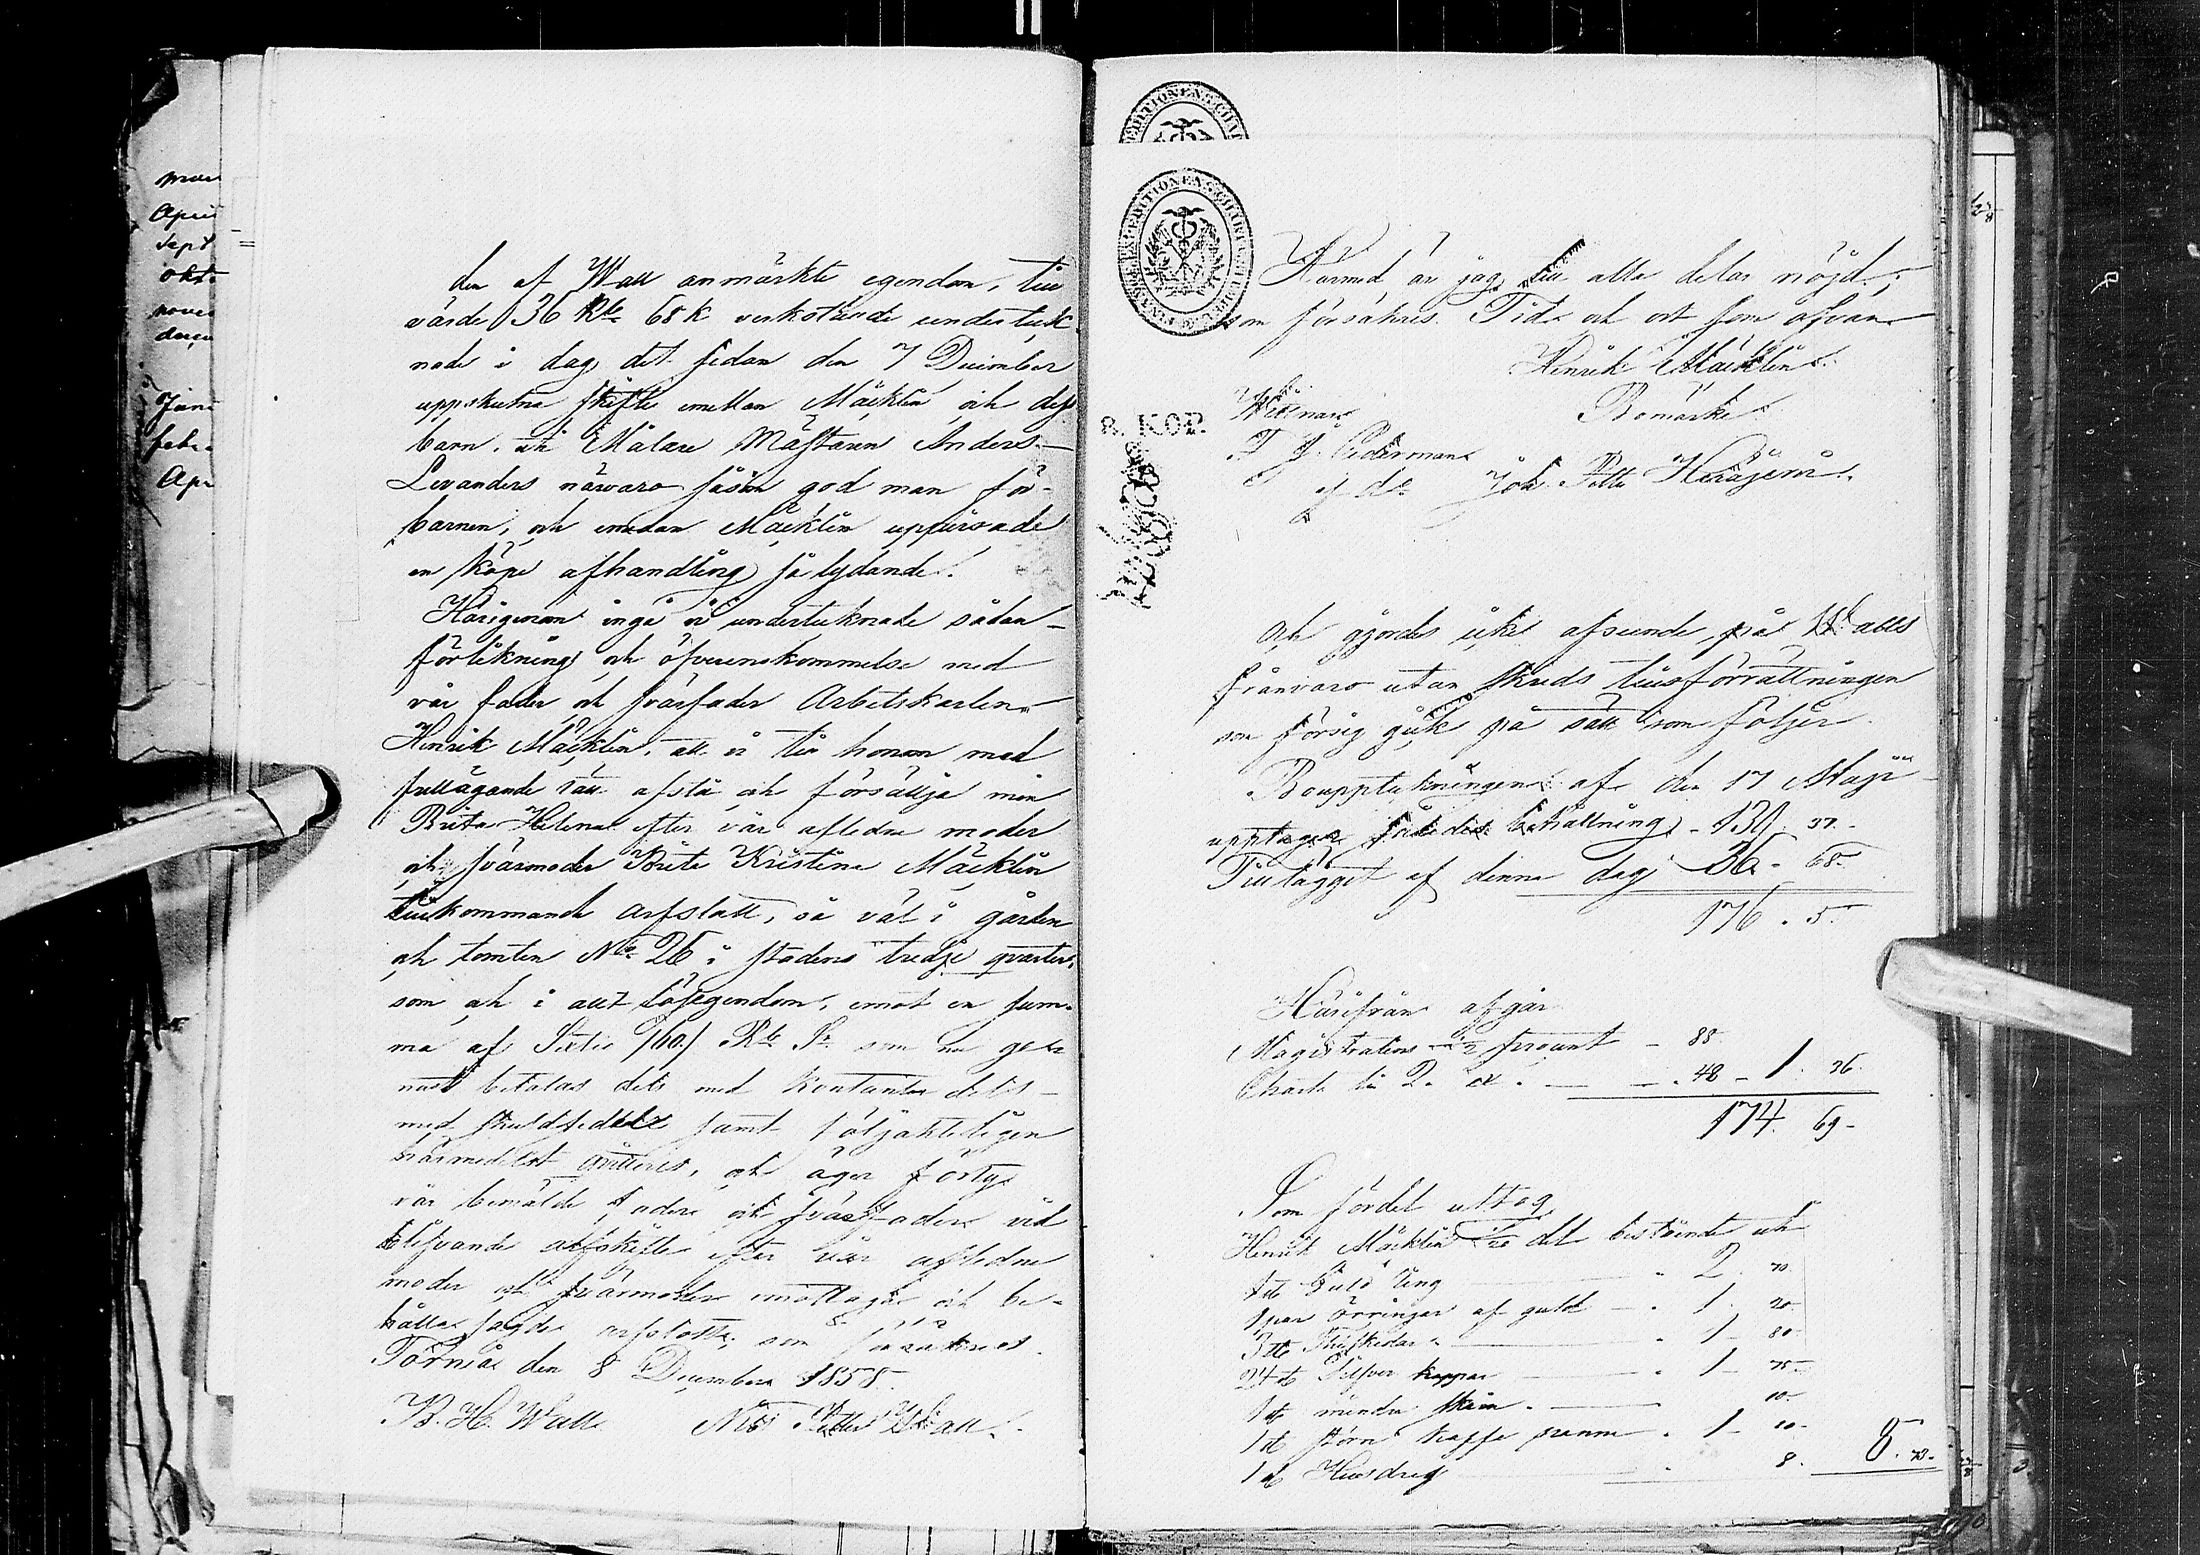 den af Wall anmärkte egendom, till
värde 36 Rbl 68 K verkstälde underteck-
nade i dag det sedan den 7 December
uppskutna skifte emellan Mäcklin och dess
barn, uti Målare Mästaren Anders
Levanders närvaro såsom god man för
barnen, och emedan Mäcklin uppvisade
en köpe afhandling så lydande.
Härigenom ingå vi undertecknade sådan
förlikning och öfverenskommelse med
vår fader och svärfader Arbetskarlen
Henrik Mäcklin, att vi till honom med
full ägande rätt afstå och försälja min
Brita Helenas efter vår aflidne moder
och svärmoder Brita Kristina Mäcklin
tillkommande arfslott, så väl i gården
och tomten No 26 i stadens tredje qvarter,
som och i allt lösegendom, emot en sum-
ma af Sextio /60./ Rbl Sr som nu ge-
nast betalas dels med kontanter dels
med skuldsedel samt följaktligen
härmedelst qvitteras, och äger förty
vår bemälde fader och svärfader vid
blifvande arfskifte efter vår aflidne
moder och svärmoder emottaga och be-
hålla sagde arfslott, som försäkras.
Torneå den 8 December 1858.
B. H. Wall Nils Petter Wall
Härmed är jag till alla delar nöjd,
som försäkras. Tid och ort som ofvan
Henrik Mäcklin
Bomärke
Vittnar
af do Joh. Petter
8. KOP.
Och gjordes icke afseende på Walls
frånvaro utan skreds till förrättningen
som försig gick på sätt som följer
Bouppteckningen af den 17 Maji
upptager behållning - 139. 37.
Tillägget af denna dag 36. 68.
176. 5.
Härifrån afgår
Magistratens 1/2 procent - 88
Charta till 2 ex. - 48 - 1. 36.
174. 69.
Som fördel uttog
Henrik Mäcklin 1/20 del bestående uti
1 st Guld ring 2. 70.
1 par örringar af guld 1. 20.
3 st Theskedar 1. 80.
2 st Silfver koppar 1. 75.
1 st mindre 10.
1 st större kaffe panna 1. 10.
1 st 8. 8. 73.